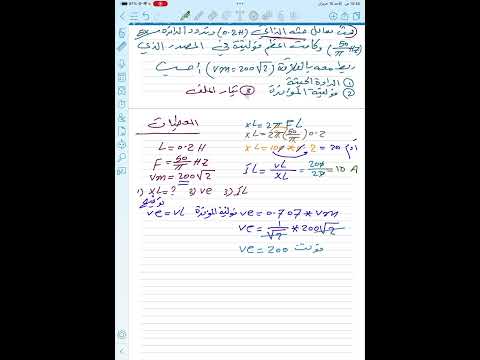 محث معامل حثه الذاتي (0.2H) وتردد الدائرة
(50/π Hz) وكانت اعظم فولتية في المصدر الذي
ربط معه بالعلاقة (vm=200√2) احسب
① الرادة الحثية
② فولتية المؤثرة ③ تيار الملف
المعطيات
L=0.2H
F=50/π HZ
vm=200√2
1) XL=? 2) ve 3) IL
XL=2πFL
XL=2π(50/π)0.2
XL=100*0.2=20 أوم
IL=vL/XL=200/20=10A
ve=vL
فولتية المؤثرة ve=0.707*vm
ve=1/√2*200√2
ve=200 فولت